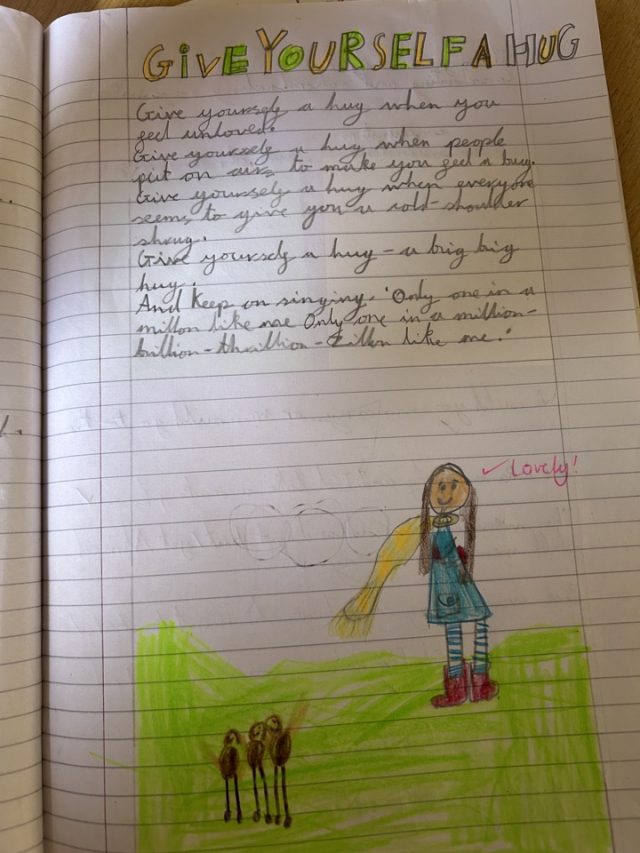 GiVE YOURSELF A HUG
Give yourself a hug when you
feel unloved.
Give yourself a hug when people
put on airs to make you feel a bug.
Give yourself a hug when everyone
seems to give you a cold-shoulder
shrug.
Give yourself a hug - a big big
hug.
And keep on singing. 'Only one in a
millon like me Only one in a million-
billion-thrillion-zillon like me.'
✓ Lovely!